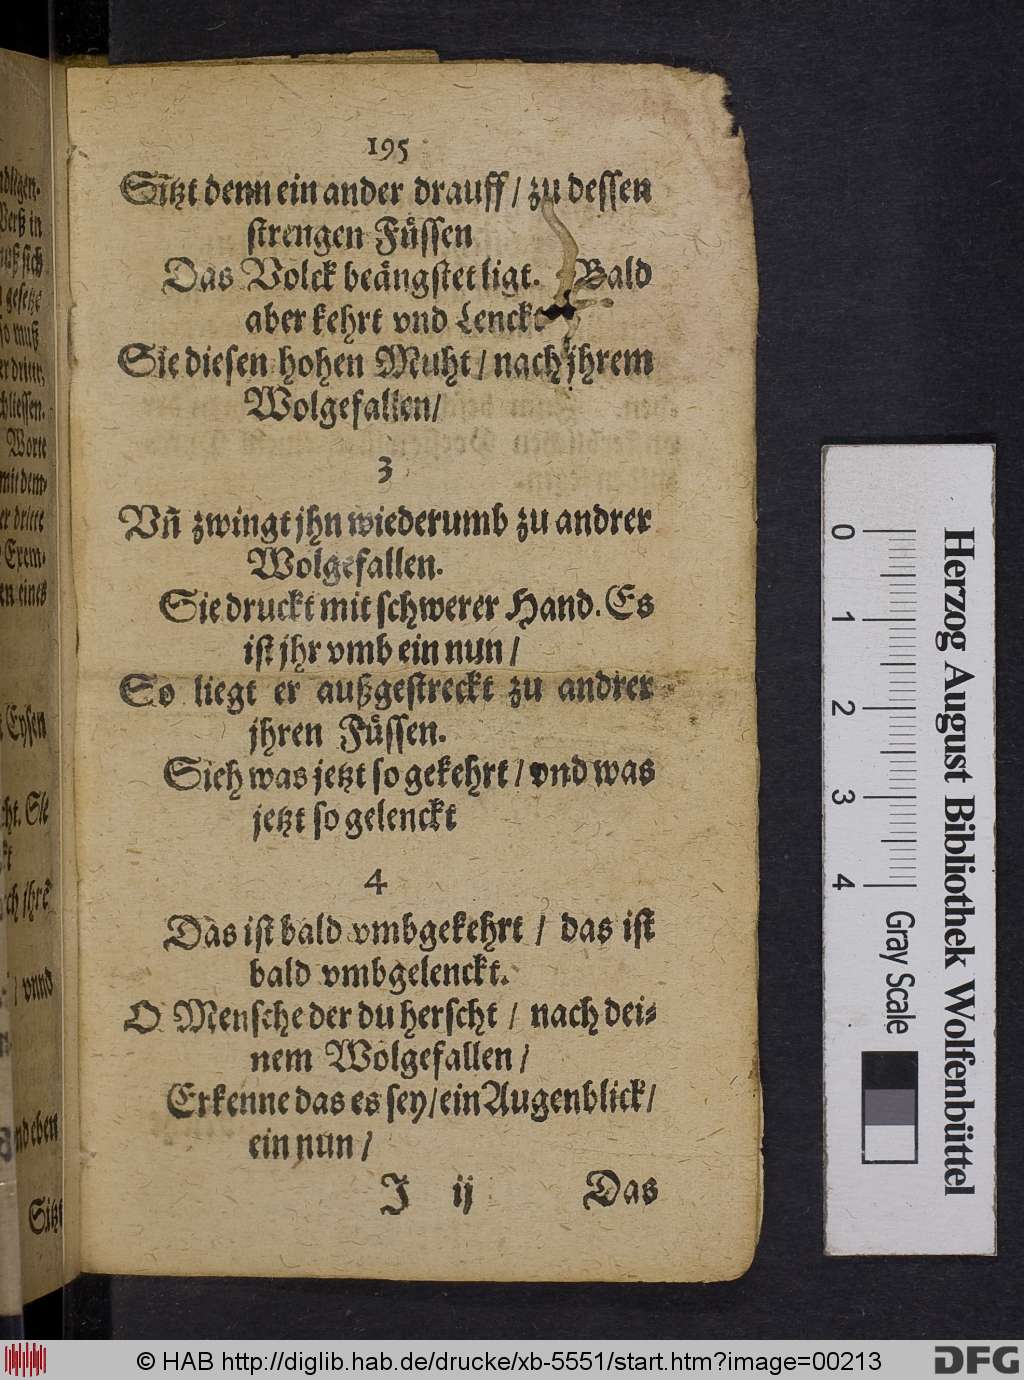 195
Sitzt denn ein ander drauff / zu dessen
strengen Füssen
Das Volck beängstet ligt. Bald
aber kehrt vnd Lenckt
Sie diesen hohen Muht / nach jhrem
Wolgefallen /
3
Vñ zwingt jhn wiederumb zu andrer
Wolgefallen.
Sie druckt mit schwerer Hand. Es
ist jhr vmb ein nun /
So liegt er außgestreckt zu andrer
jhren Füssen.
Sieh was jetzt so gekehrt / vnd was
jetzt so gelenckt
4
Das ist bald vmbgekehrt / das ist
bald vmbgelenckt.
O Mensche der du herscht / nach dei-
nem Wolgefallen /
Erkenne das es sey / ein Augenblick /
ein nun /
J ij Das
Worte
Eysen
vnnd
Sitzt
0 1 2 3 4
Gray Scale
Herzog August Bibliothek Wolfenbüttel
© HAB http://diglib.hab.de/drucke/xb-5551/start.htm?image=00213
DFG